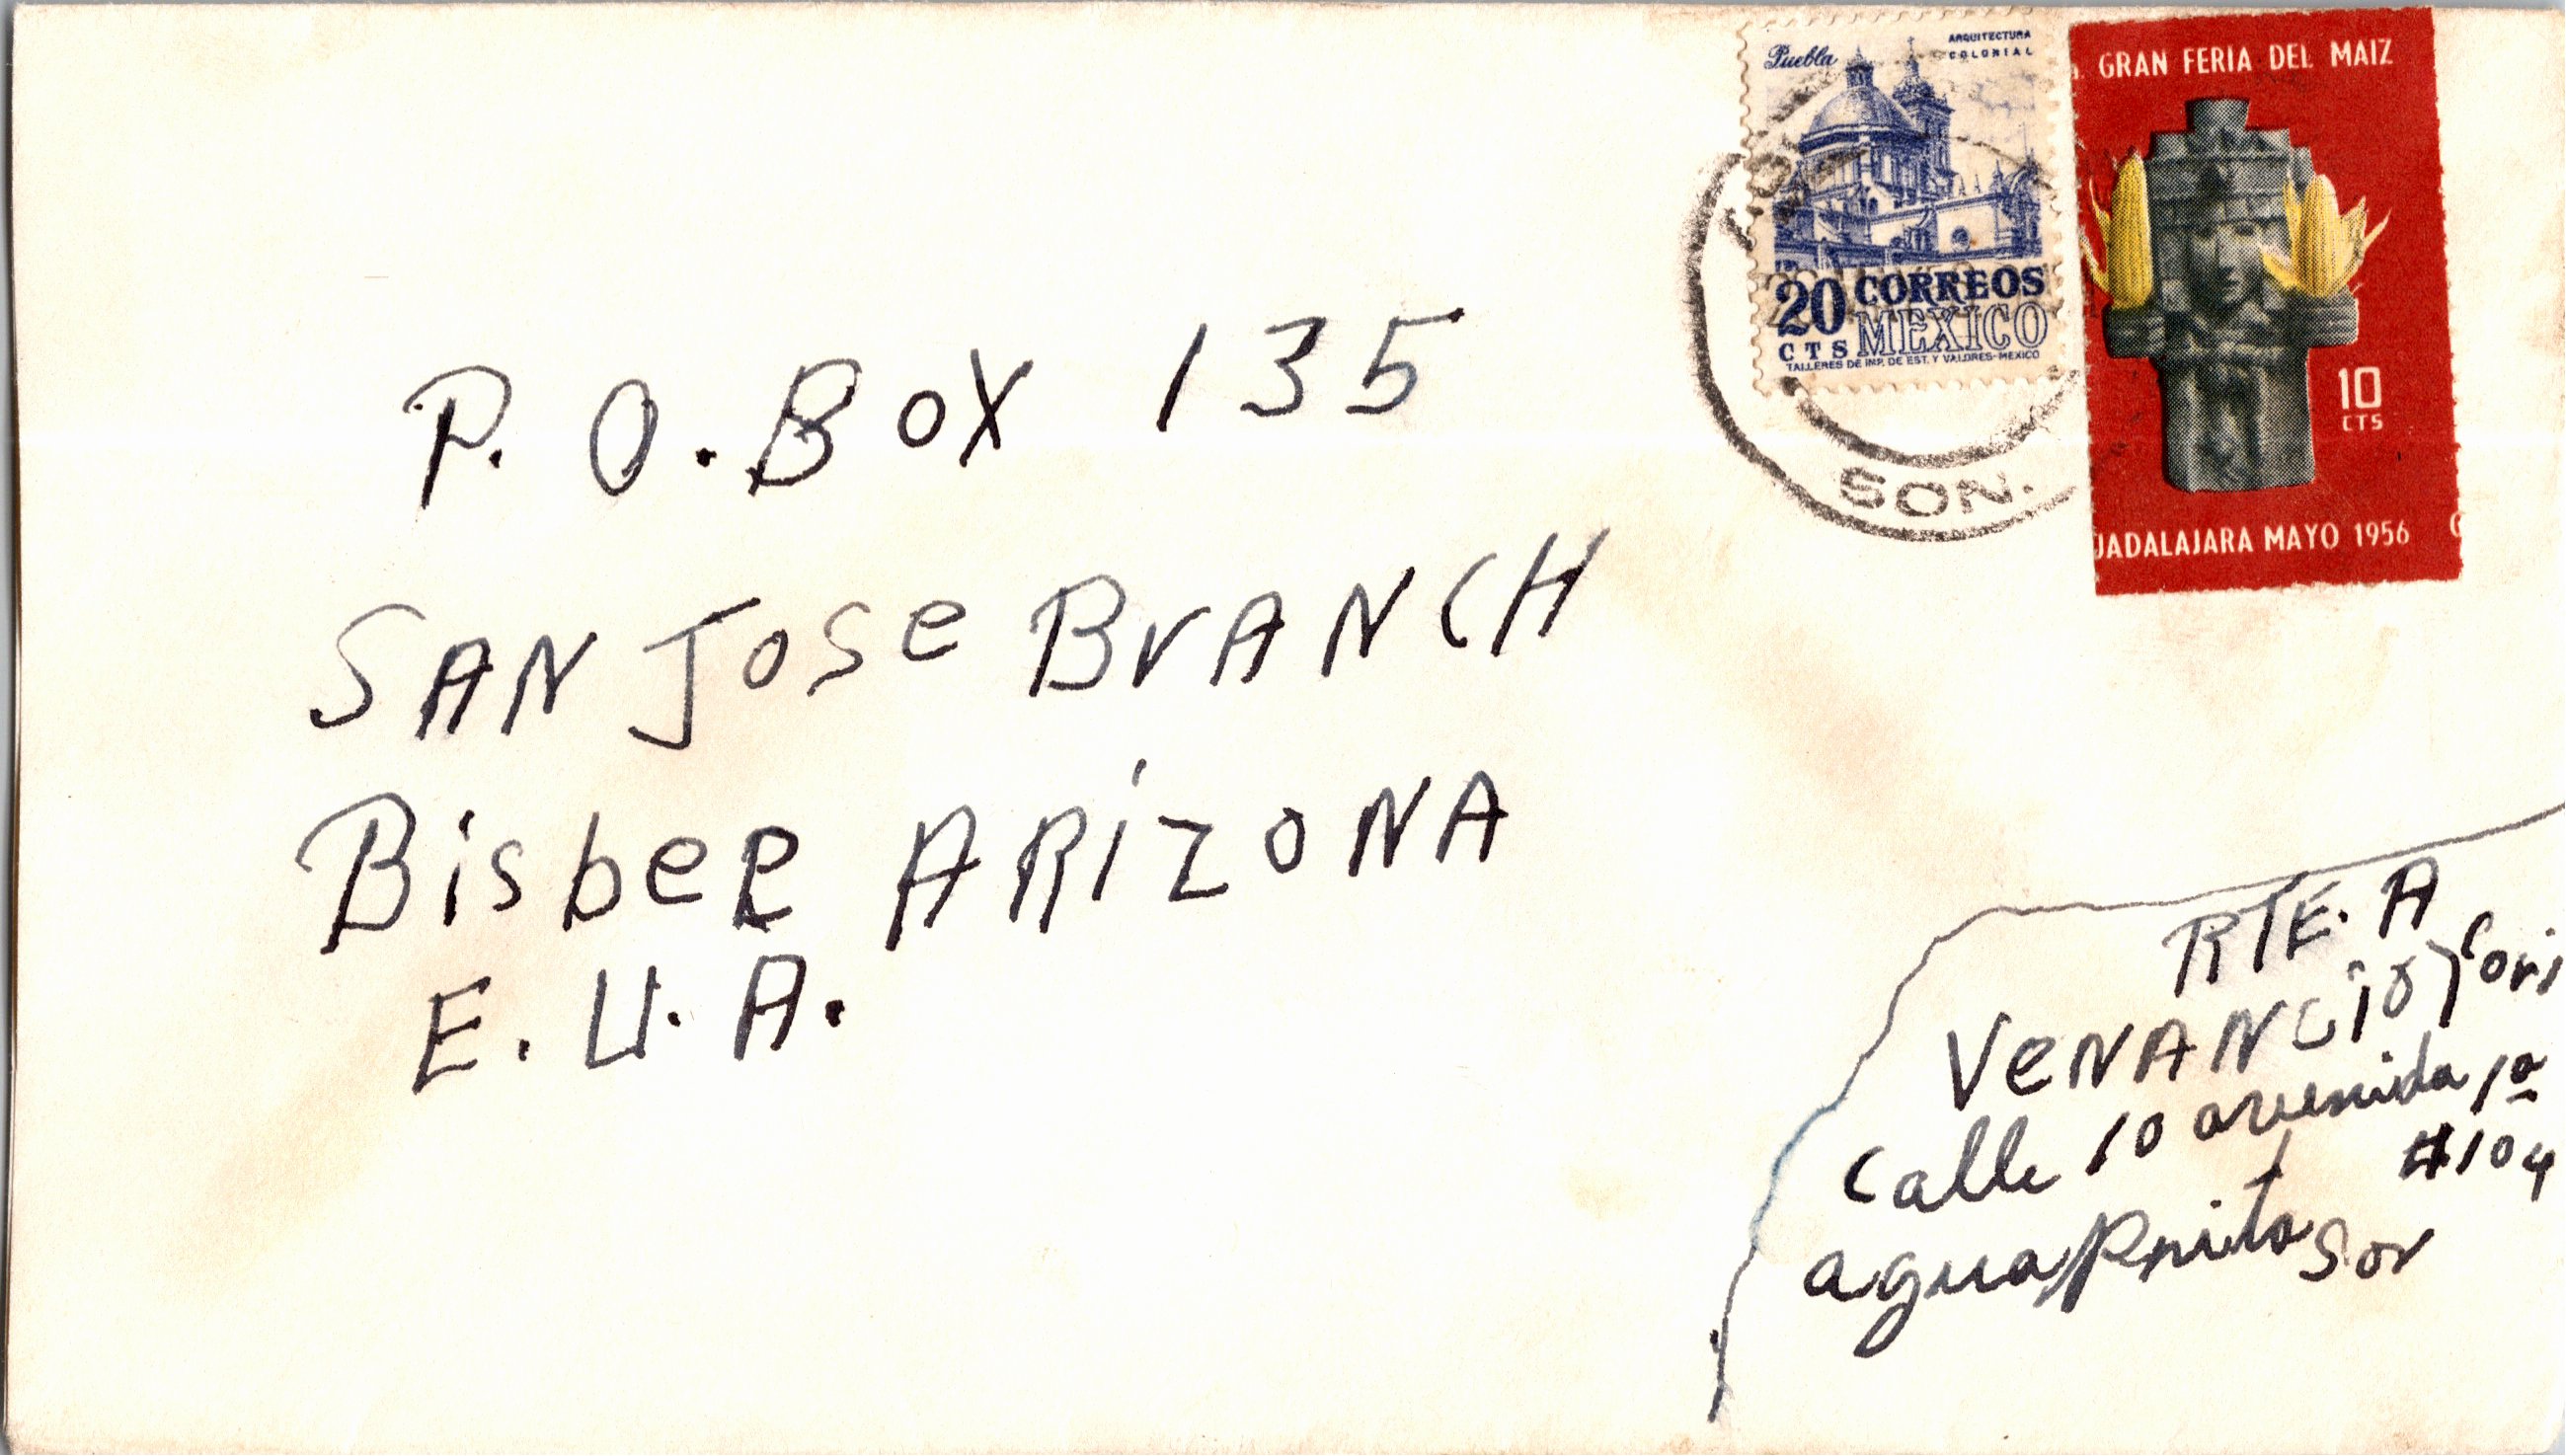 Puebla
ARQUITECTURA
COLONIAL
20 CORREOS
CTS MEXICO
TALLERES DE IMP. DE EST. Y VALORES-MEXICO
GRAN FERIA DEL MAIZ
10
CTS
UADALAJARA MAYO 1956 G
SON.
P. O. BOX 135
SAN Jose BrANCH
Bisbee ARiZONA
E. U. A.
RTE. A
VeNANCio
Calle 10 avenida 1a
#104
agua Prieta Sor